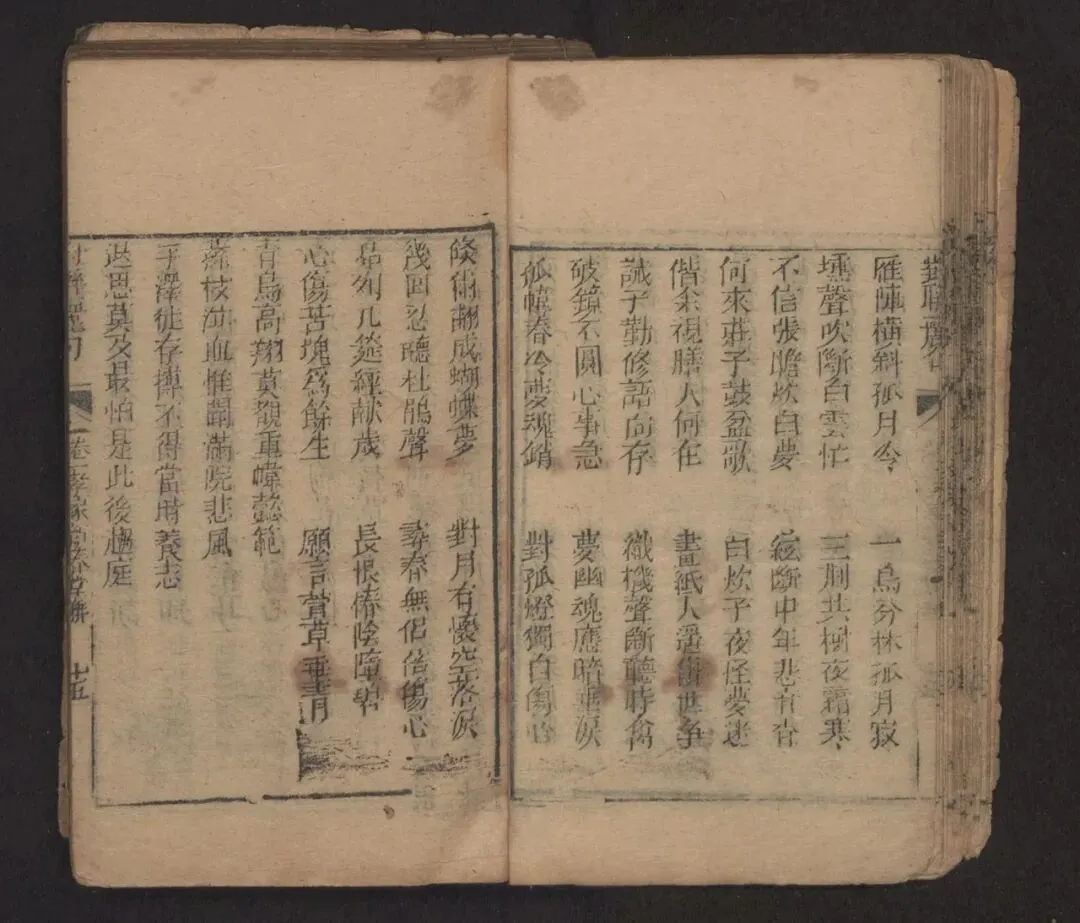 雁陣橫斜孤月令 一鳥分林孤月寂
壎聲吹斷白雲忙 三荆共樹夜霜寒
不信張瞻炊白夢 絃斷中年悲有杳
何來莊子鼓盆歌 臼炊子夜怪夢迷
偕余視膳人何在 畫紙人遥世争
誡子勤修語尚存 織機聲斷聽時禽
破鏡不圓心事急 夢幽魂應暗垂淚
孤幃春冷夢魂銷 對孤燈獨自傷心
倐爾翻成蝴蝶夢 對月有懷空落淚
幾回忍聽杜鵑聲 尋春無侣倍傷心
昻列几筵經献歳 長恨椿陰隕碧
心傷苫塊爲餘生 願言萱草垂青
青鳥高翔莫覩重幃懿範
蘇枝泣血惟聞滿院悲風
手澤徒存摶不得當時養志
返思莫及最怕是此後趨庭
卷 十五